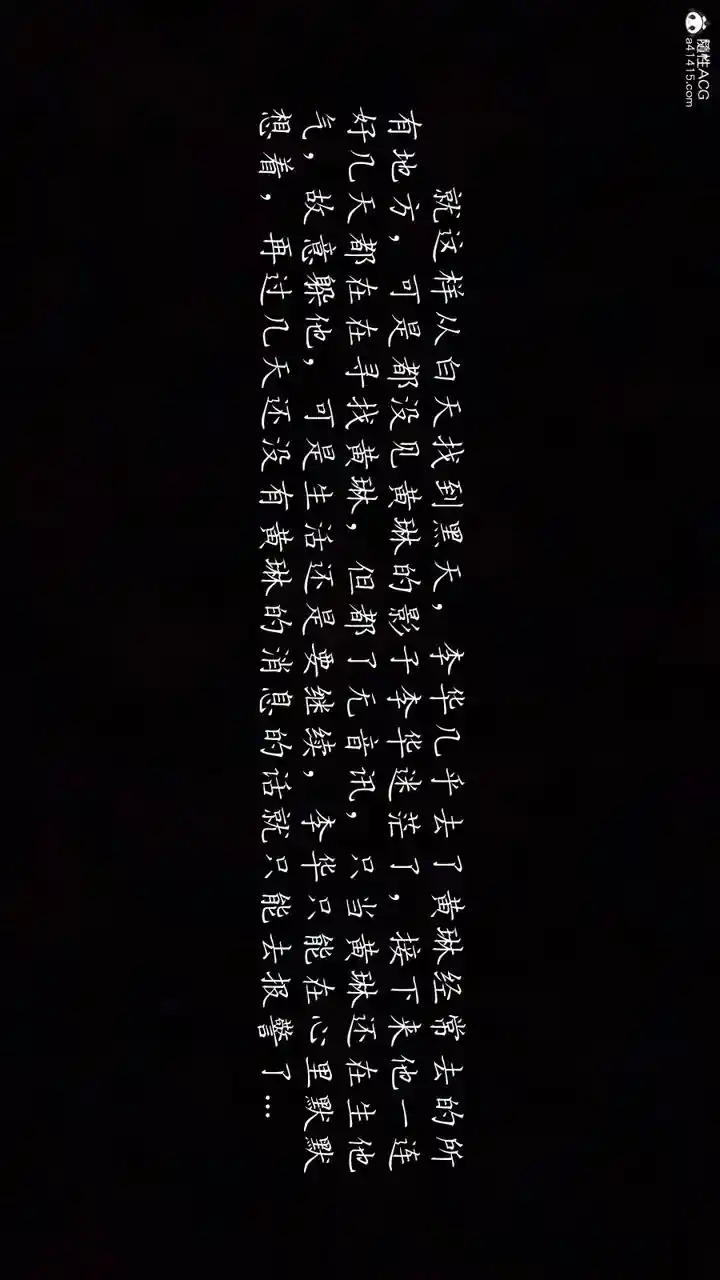 隨性ACG
a41415.com
就这样从白天找到黑天，李华几乎去了黄琳经常去的所
有地方，可是都没见黄琳的影子李华迷茫了，接下来他一连
好几天都在在寻找黄琳，但都了无音讯，只当黄琳还在生他
气，故意躲他，可是生活还是要继续，李华只能在心里默默
想着，再过几天还没有黄琳的消息的话就只能去报警了…